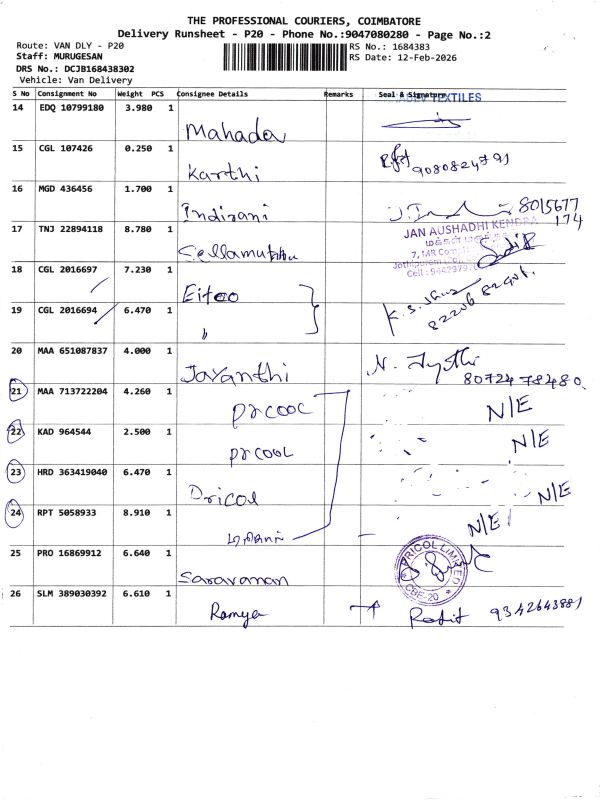 THE PROFESSIONAL COURIERS, COIMBATORE
Delivery Runsheet - P20 - Phone No.:9047080280 - Page No.:2
Route: VAN DLY - P20
Staff: MURUGESAN
DRS No.: DCJB168438302
Vehicle: Van Delivery
RS No.: 1684383
RS Date: 12-Feb-2026
S No Consignment No Weight PCS Consignee Details Remarks Seal & Signature
TEXTILES
14 EDQ 10799180 3.980 1 Mahadev
15 CGL 107426 0.250 1 Karthi
16 MGD 436456 1.700 1 Indirani 8015677
174
17 TNJ 22894118 8.780 1 Sellamuthu
JAN AUSHADHI KENDRA
மக்கள் மருந்தகம்
18 CGL 2016697 7.230 1 Eitoo
19 CGL 2016694 6.470 1 "
20 MAA 651087837 4.000 1 Jayanthi
80724 78480
21 MAA 713722204 4.260 1 pricol N/E
22 KAD 964544 2.500 1 pricol N/E
23 HRD 363419040 6.470 1 Pricol N/E
24 RPT 5058933 8.910 1 N/E
25 PRO 16869912 6.640 1 Saravanan
PRICOL LIMITED
CBE-20
26 SLM 389030392 6.610 1 Ramya 9342643881